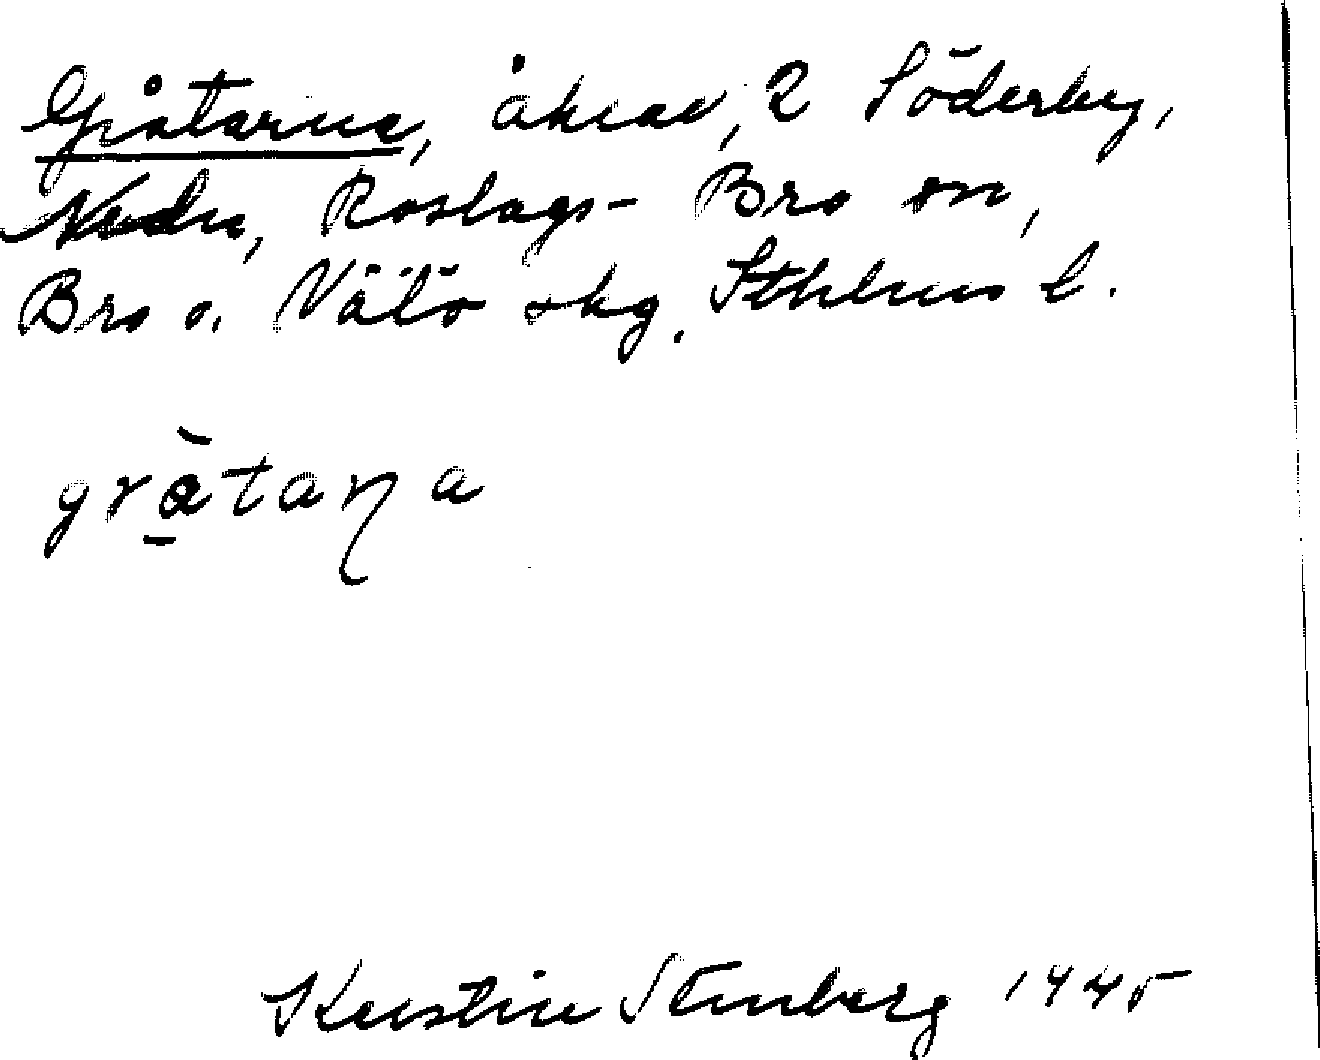 Gråtarna, åkrar, 2 Söderby,
Nedre, Roslags-Bro sn,
Bro o. Vätö skg. Sthlms l.
gràtaṇa
Kerstin Stenberg 1945